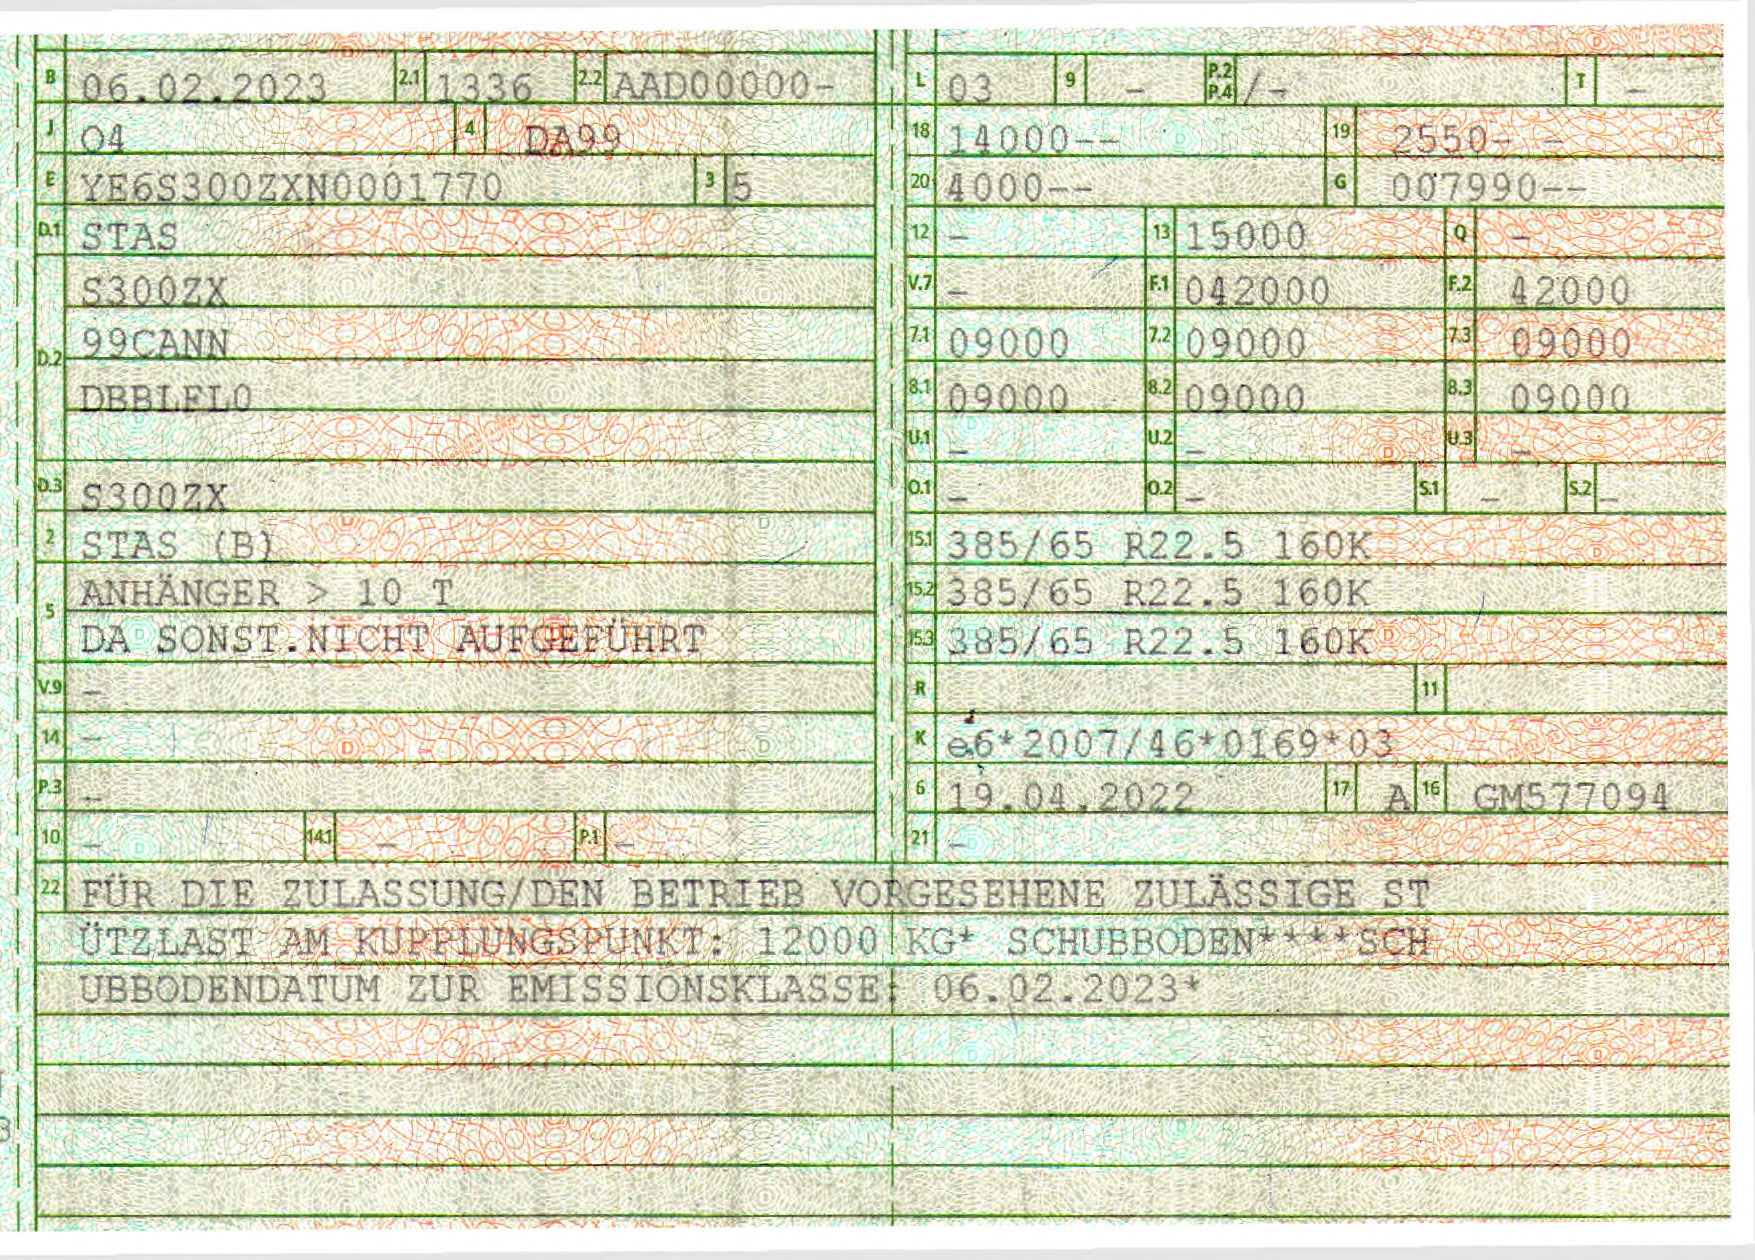 B 06.02.2023 2.1 1336 2.2 AAD00000-
J O4 4 DA99
E YE6S300ZXN0001770 3 5
D.1 STAS
S300ZX
D.2 99CANN
DBBLFL0
D.3 S300ZX
2 STAS (B)
5 ANHÄNGER > 10 T
DA SONST.NICHT AUFGEFÜHRT
V.9 -
14 -
P.3 -
10 - 14.1 - P.1 -
L 03 9 - P.2 P.4 /- T -
18 14000-- 19 2550- -
20 4000-- G 007990--
12 - 13 15000 Q -
V.7 - F.1 042000 F.2 42000
7.1 09000 7.2 09000 7.3 09000
8.1 09000 8.2 09000 8.3 09000
U.1 - U.2 - U.3 -
O.1 - O.2 - S.1 - S.2 -
15.1 385/65 R22.5 160K
15.2 385/65 R22.5 160K
15.3 385/65 R22.5 160K
R 11
K e6*2007/46*0169*03
6 19.04.2022 17 A 16 GM577094
21 -
22 FÜR DIE ZULASSUNG/DEN BETRIEB VORGESEHENE ZULÄSSIGE ST
ÜTZLAST AM KUPPLUNGSPUNKT: 12000 KG* SCHUBBODEN****SCH
UBBODENDATUM ZUR EMISSIONSKLASSE: 06.02.2023*